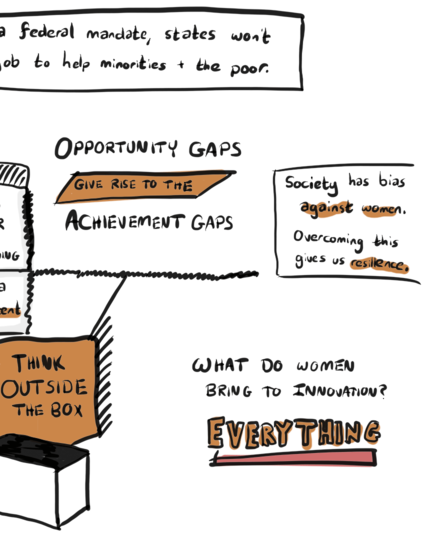 a federal mandate, states won't
job to help minorities + the poor.
OPPORTUNITY GAPS
GIVE RISE TO THE
ACHIEVEMENT GAPS
Society has bias
against women.
Overcoming this
gives us resilience.
THINK
OUTSIDE
THE BOX
WHAT DO WOMEN
BRING TO INNOVATION?
EVERYTHING